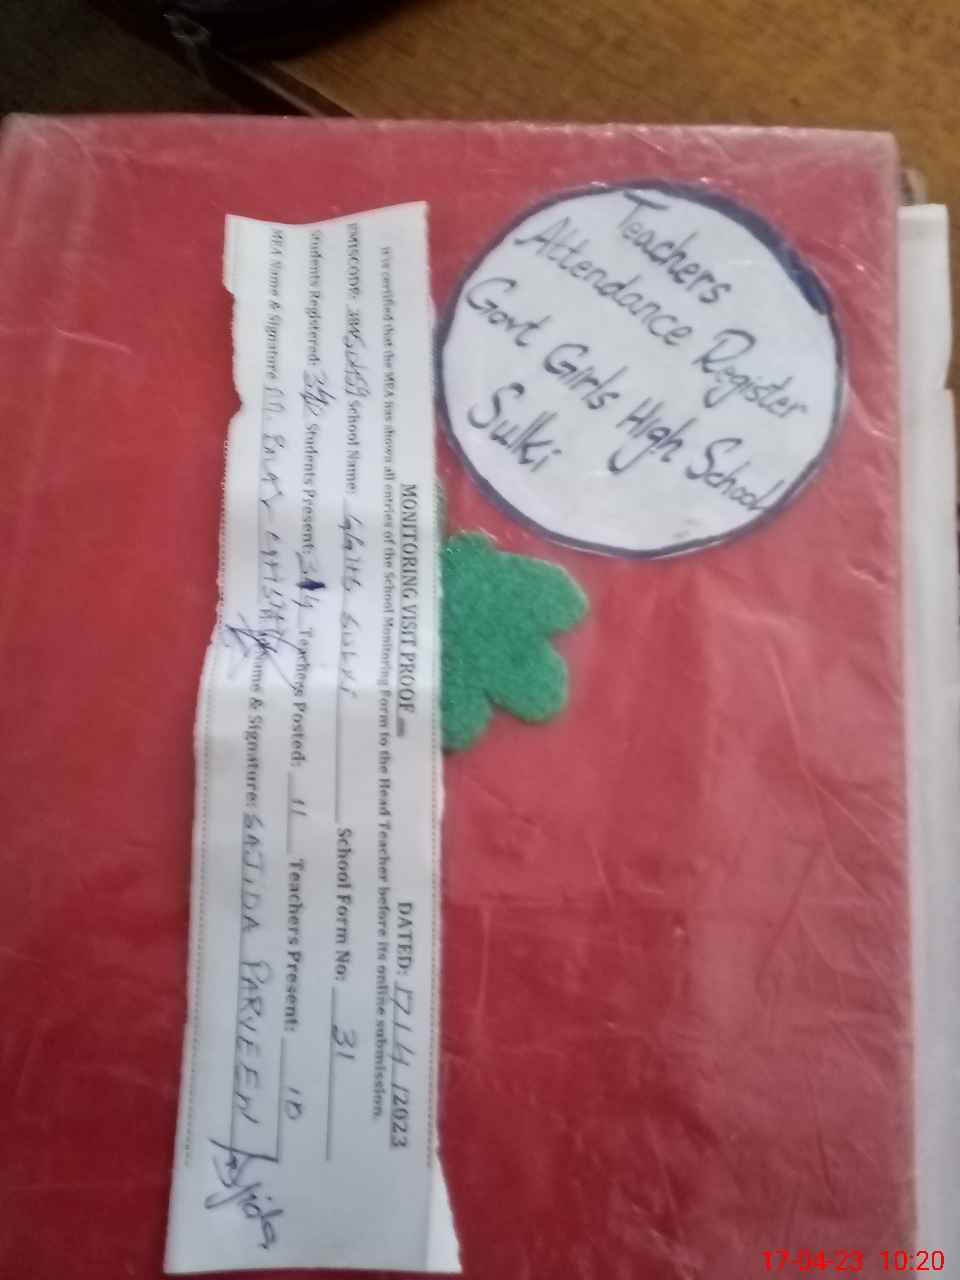 Teachers
Attendance Register
Govt Girls High School
Sulki
MONITORING VISIT PROOF DATED: 17/4/2023
It is certified that the MEA has shown all entries of the School Monitoring Form to the Head Teacher before its online submission.
EMISCODE: School Name: GGHS SULKI School Form No: 31
Students Registered: Students Present: Teachers Posted: 11 Teachers Present: 10
MEA Name & Signature Name & Signature: SAJIDA PARVEEN Sajida
17-04-23 10:20